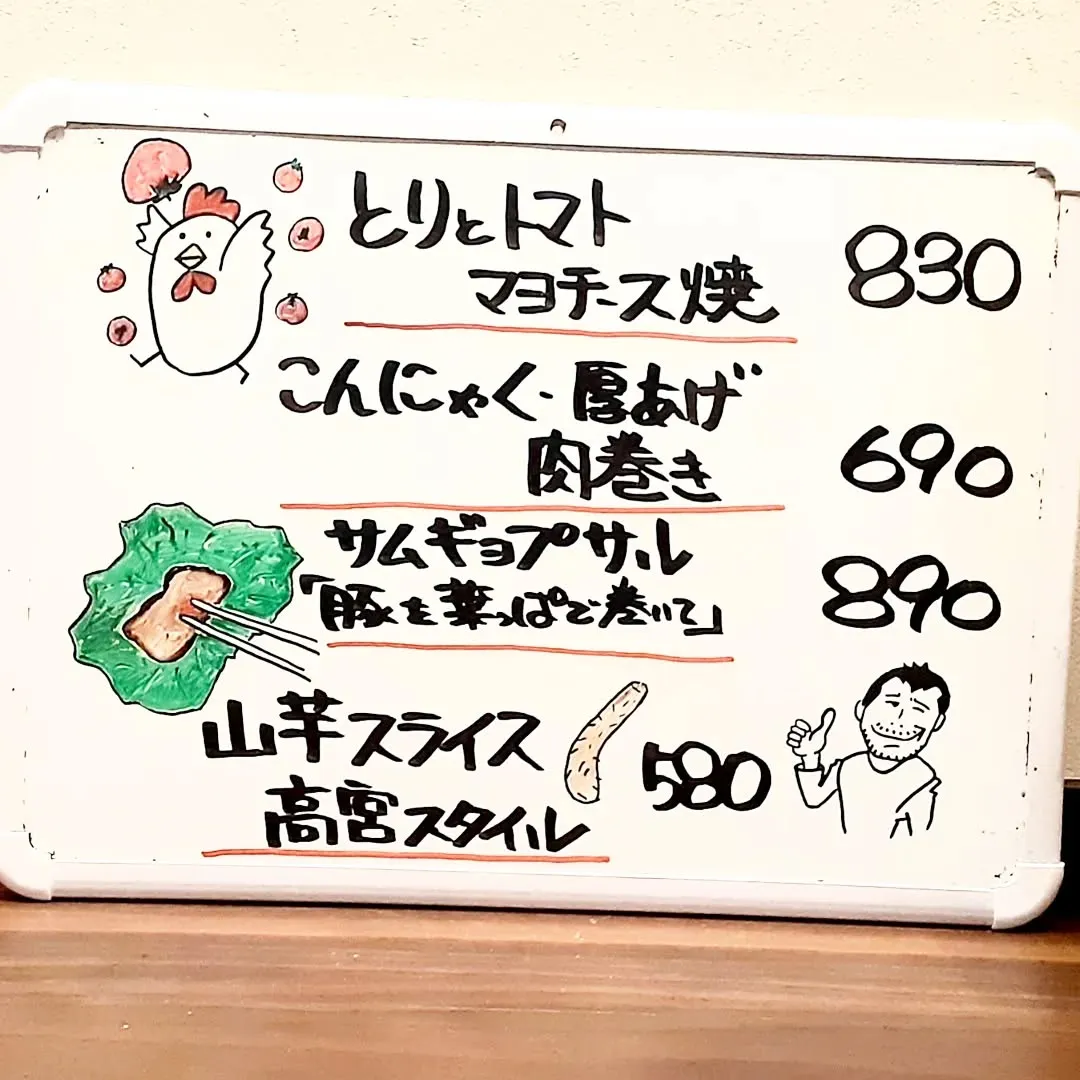 とりとトマト
マヨチーズ焼
830
こんにゃく・厚あげ
肉巻き
690
サムギョプサル
「豚を葉っぱで巻いて」
890
山芋スライス
580
高宮スタイル